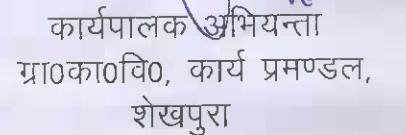 कार्यपालक अभियन्ता
ग्रा०का०वि०, कार्य प्रमण्डल,
शेखपुरा